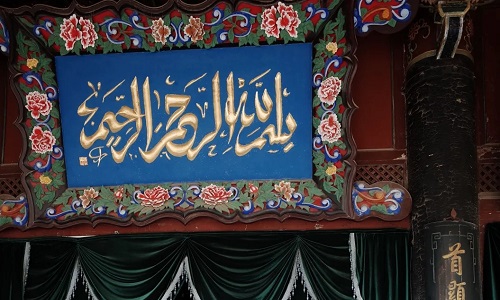 بسم الله الرحمن الرحيم
首顯